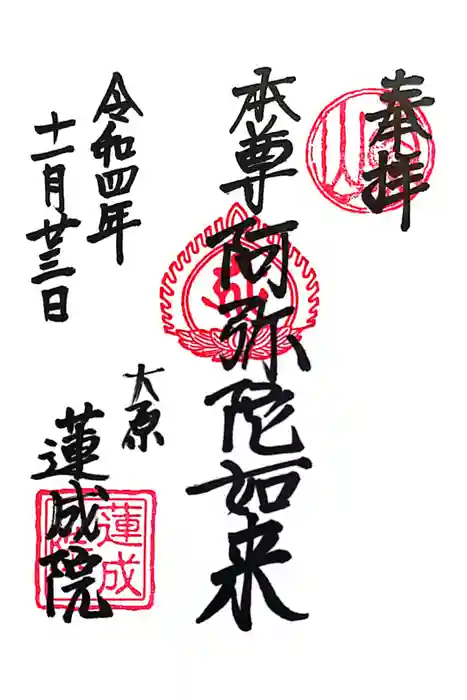 奉拝
本尊 阿弥陀如来
令和四年
十一月廿三日
大原
蓮成院
蓮成
院